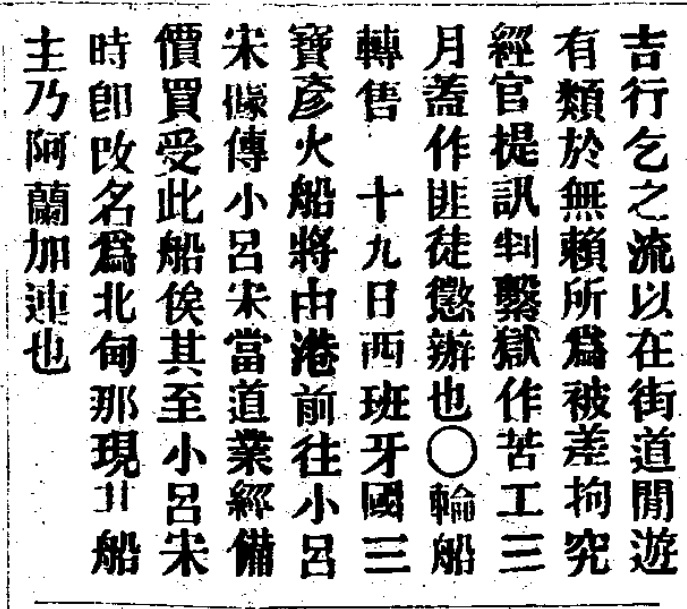 吉行乞之流以在街道閒遊
有類於無賴所爲被差拘究
經官提訊判繫獄作苦工三
月蓋作匪徒懲辦也〇輪船
轉售　十九日西班牙國三
寶彥火船將由港前往小呂
宋據傳小呂宋當道業經備
價買受此船俟其至小呂宋
時卽改名爲北甸那現船
主乃阿蘭加連也